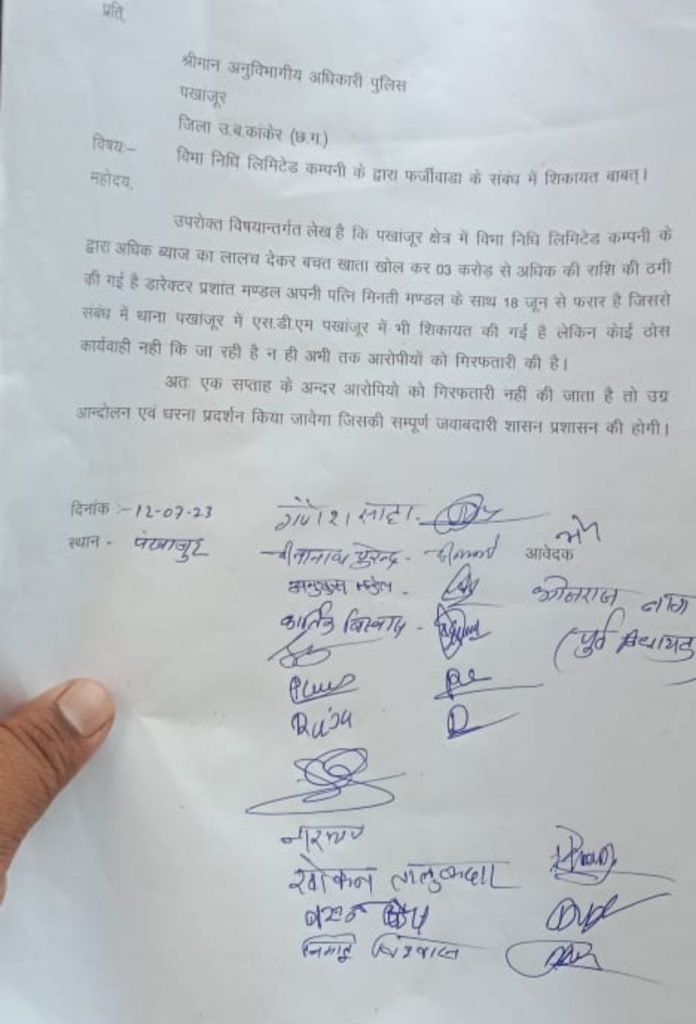 प्रति,
श्रीमान अनुविभागीय अधिकारी पुलिस
पखांजूर
जिला उ.ब.कांकेर (छ.ग.)
विषयः– विभा निधि लिमिटेड कम्पनी के द्वारा फर्जीवाडा के संबंध में शिकायत बाबत्।
महोदय,
उपरोक्त विषयान्तर्गत लेख है कि पखांजूर क्षेत्र में विभा निधि लिमिटेड कम्पनी के
द्वारा अधिक ब्याज का लालच देकर बचत खाता खोल कर 03 करोड़ से अधिक की राशि की ठगी
की गई है डारेक्टर प्रशांत मण्डल अपनी पत्नि मिनती मण्डल के साथ 18 जून से फरार है जिससे
संबंध में थाना पखांजूर में एस.डी.एम पखांजूर में भी शिकायत की गई है लेकिन कोई ठोस
कार्यवाही नही कि जा रही है न ही अभी तक आरोपीयों को गिरफतारी की है।
अतः एक सप्ताह के अन्दर आरोपियो को गिरफतारी नहीं की जाता है तो उग्र
आन्दोलन एवं धरना प्रदर्शन किया जावेगा जिसकी सम्पूर्ण जवाबदारी शासन प्रशासन की होगी।
दिनांक :– 12-07-23
स्थान - पंखाजुर
आवेदक
भोजराज नाग
(पूर्व विधायक
गणेश साहा
दीनानाथ
कार्तिक बिस्वास
नारायण
खोकन तालुकदार
निमाई विश्वास